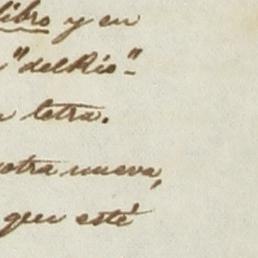 libro y en
"del Rio"-
letra.
otra nueva,
que esté